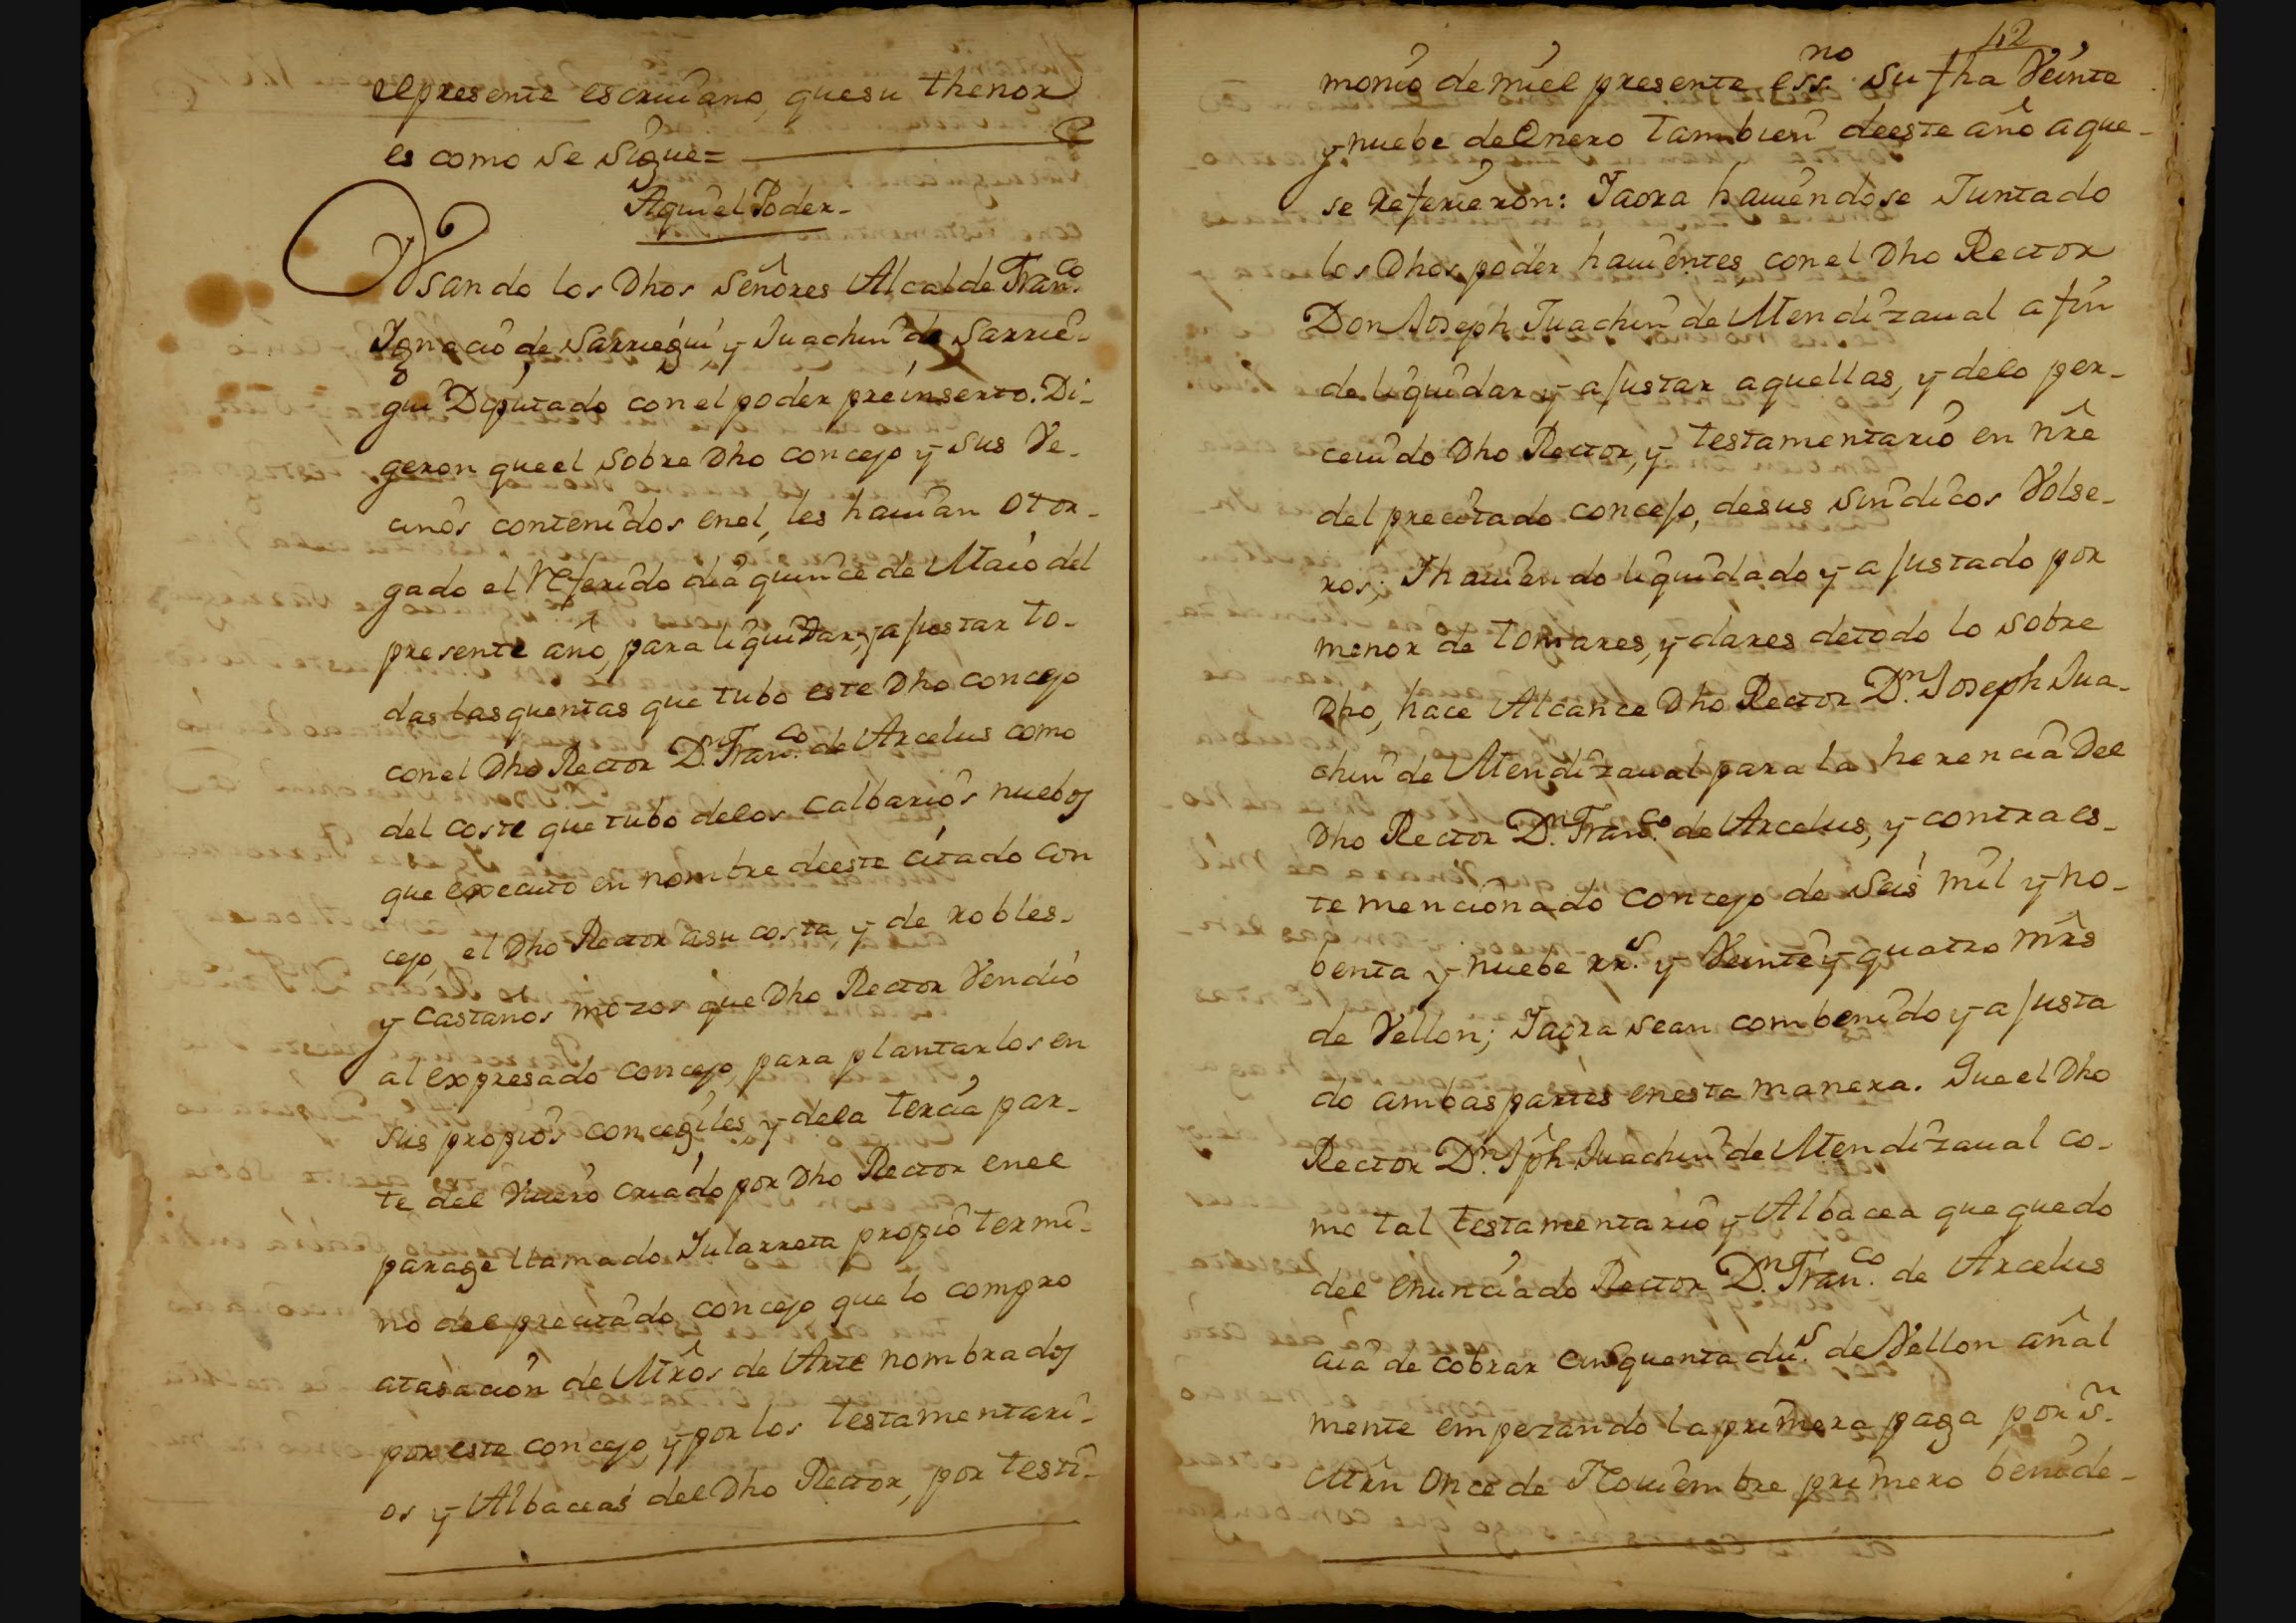 el presente escriuano, quesu thenor
es como se sigue=
Aqui el Poder-
Vsando los Dhos señores Alcalde Fran.co
Ignacio de Sarriegui, y Juachin de Sarrie-
gui Diputado con el poder preinserto. Di-
geron que el sobre Dho concejo y sus Ve-
cinos contenidos enel, les hauian otor-
gado el referido dia quince de Maio del
presente año, para liquidar, y ajustar to-
das las quentas que tubo este Dho concejo
con el Dho Rector D.n Fran.co de Arcelus como
del coste que tubo delos calbarios nuebos
que executo en nombre deeste citado con
cejo, el Dho Rector asu costa, y de robles-
y castaños mozos que Dho Rector Vendio
al expresado concejo, para plantarlos en
sus propios concegiles, y dela tercia par-
te del Viuero criado por Dho Rector enel
parage llamado Jularreta propio termi-
no del precitado concejo que lo compro
atasacion de Mr̃os de Arte nombrados
por este concejo, y por los testamentari-
os y Albaceas del Dho Rector, por testi-
42
monio de miel presente ess.no su fha Veinte
y nuebe de Enero tambien deeste año a que-
se refirieron: Iaora hauiendose Juntado
los Dhos poder hauientes con el Dho Rector
Don Joseph Juachin de Mendizaual a fin
de liquidar y ajustar aquellas, y delo per-
ciuido Dho Rector, y testamentario en nr̃e
del precitado concejo, desus sindicos Volse-
ros; I hauiendo liquidado y ajustado por
menor de tomares, y dares detodo lo sobre
Dho, hace Alcance Dho Rector D.n Joseph Jua-
chin de Mendizaual para la herencia Del
Dho Rector D.n Fran.co de Arcelus, y contra es-
te mencionado concejo de Seis mil y no-
benta y nuebe rr.s y Veinte y quatro mr̃s
de Vellon; Iaora sean combenido y ajusta
do ambas partes enesta manera. Que el Dho
Rector D.n Jph Juachin de Mendizaual co-
mo tal testamentario y Albacea que quedo
del enunciado Rector D.n Fran.co de Arcelus
aia de cobrar cinquenta du.s de Vellon añal
mente empezando la primera paga por S.n
Mrn̄ once de Nouiembre primero benide-